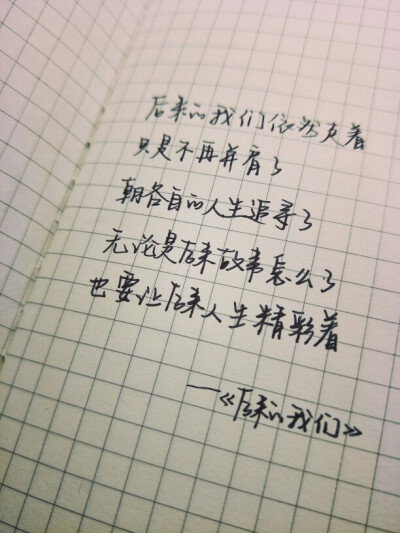 后来的我们依然走着
只是不再并肩了
朝各自的人生追寻了
无论是后来故事怎么了
也要让后来人生精彩着
——《后来的我们》